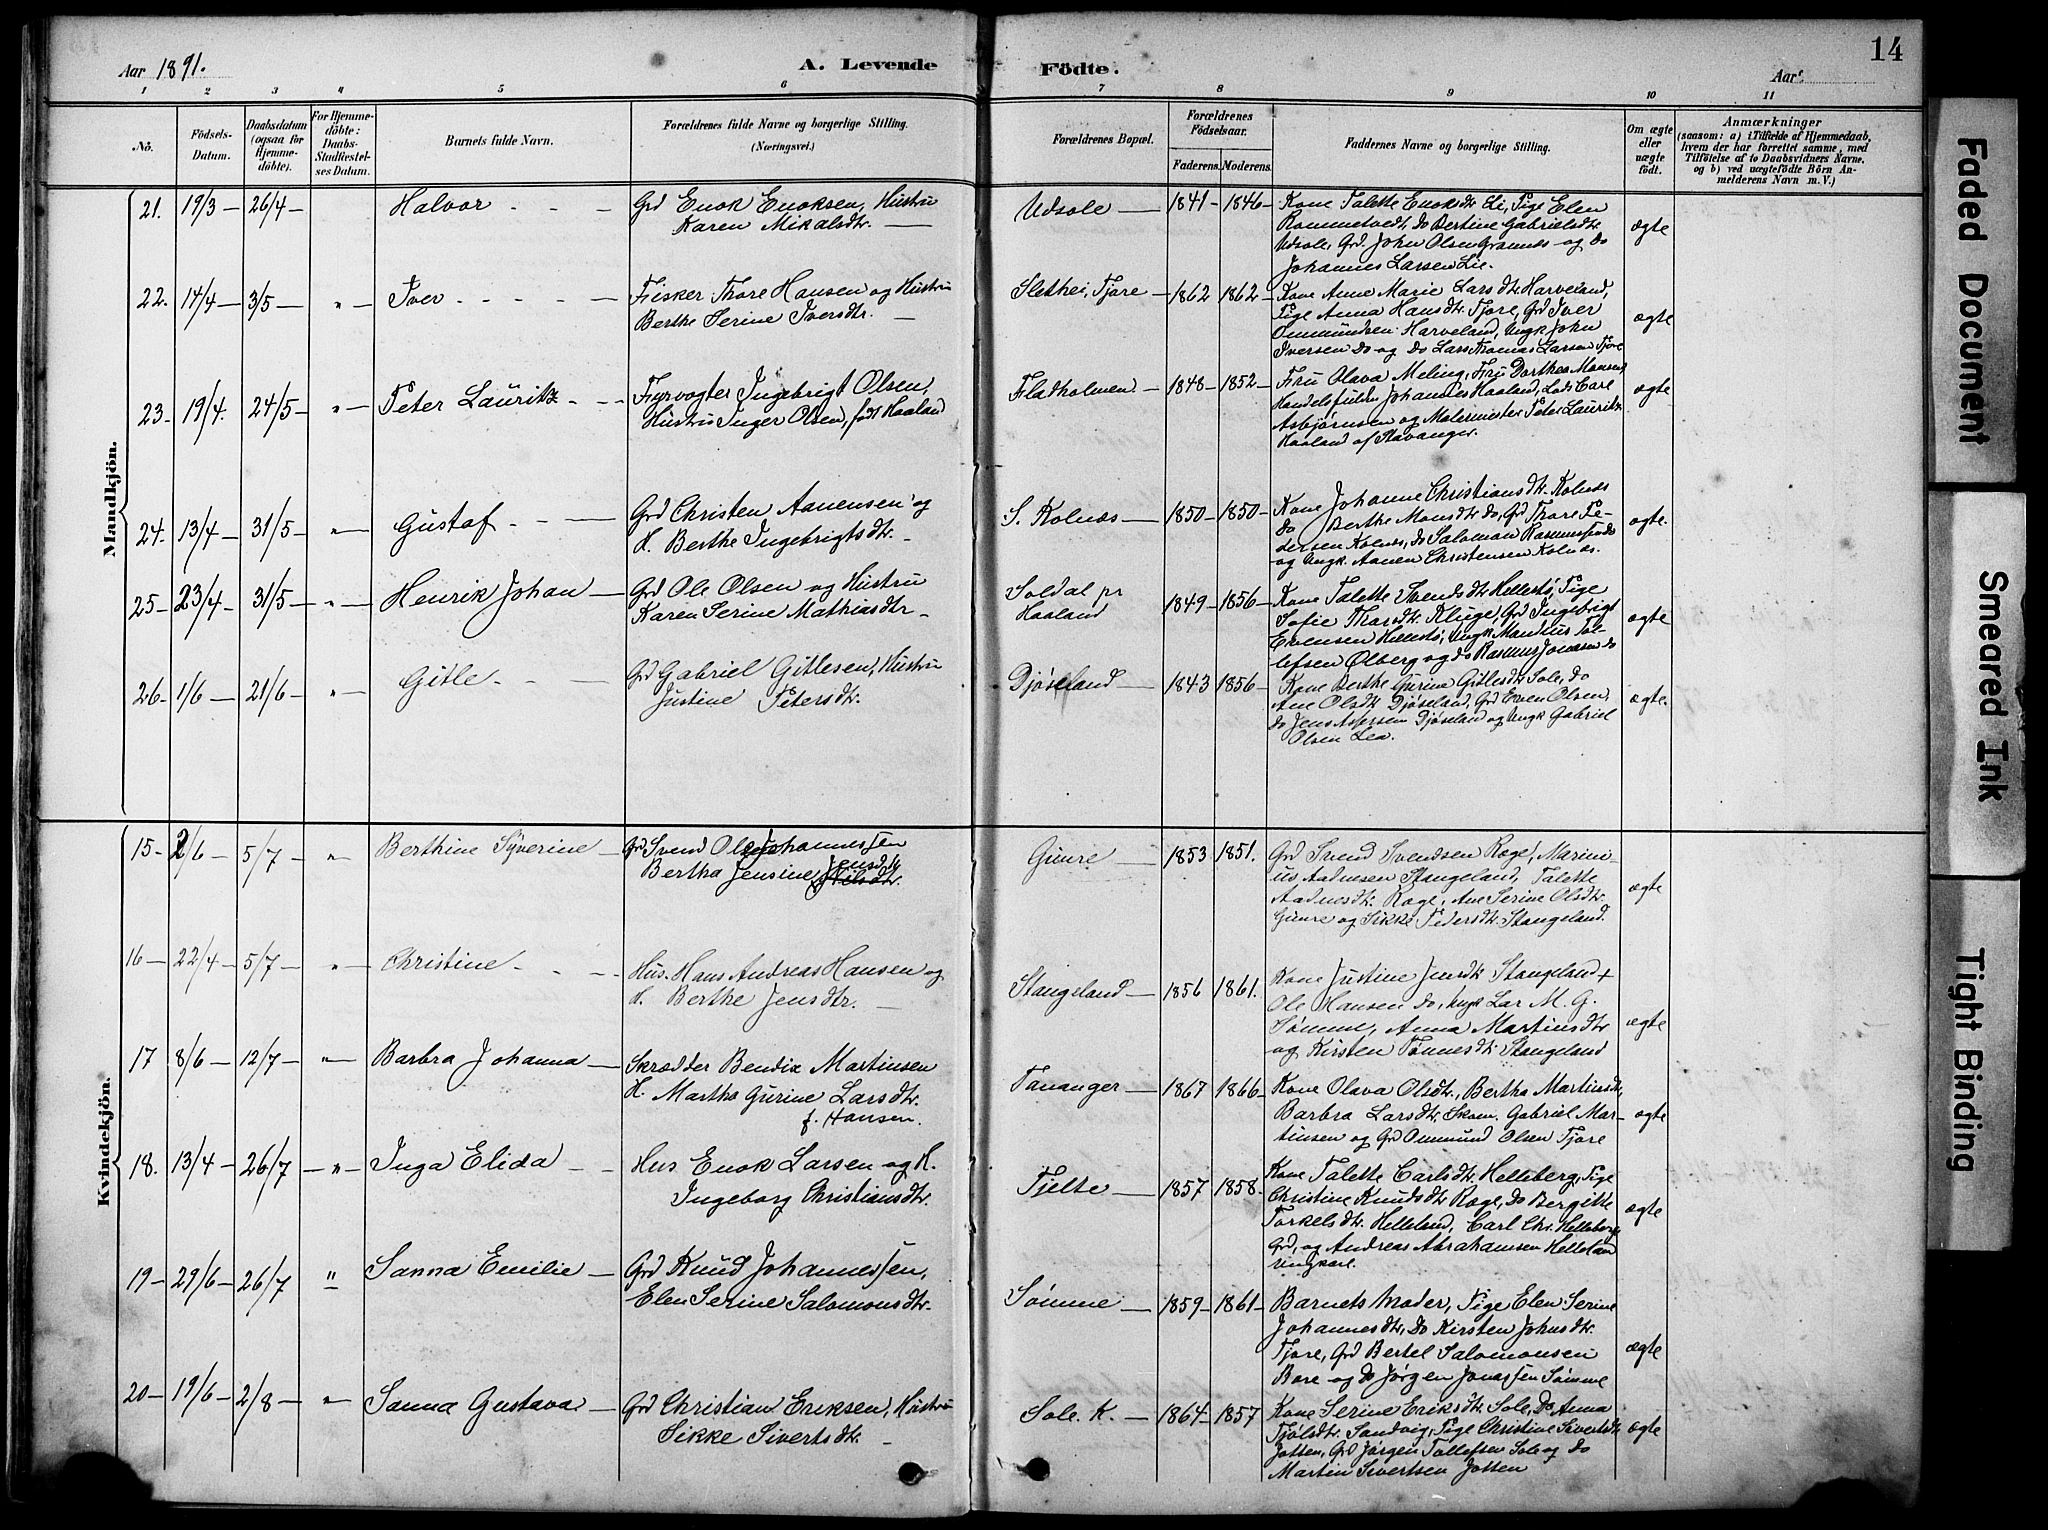 Aar 1891.
A. Levende
Födte.
Aar
14
1 2 3 4 5 6 7 8 9 10 11
No.
Födsels-Datum.
Daabsdatum (ogsaa for Hjemme-döbte).
For Hjemme-döbte: Daabs-Stadfæstel-ses Datum.
Barnets fulde Navn.
Forældrenes fulde Navne og borgerlige Stilling.
(Næringsvei.)
Forældrenes Bopæl.
Forældrenes Födselsaar.
Faderens. Moderens.
Faddernes Navne og borgerlige Stilling.
Om ægte eller uægte födt.
Anmærkninger
(saasom: a) i Tilfælde af Hjemmedaab, hvem der har forrettet samme, med Tilföielse af to Daabsvidners Navne. og b) ved uægtefödte Börn An-melderens Navn m. V.)
Mandkjön.
21. 19/3 — 26/4 — Halvor - - - Grd Enok Enoksen, Hustru
Karen Mikalsdtr. —
Udsole — 1841 - 1846 - Kone Talette Enoksdtr Li, Pige Elen
Rommetvedt, Do Bertine Gabrielsdtr
Udsole, Grd. John Olsen Grannes og Do
Johannes Larsen Lie.
ægte
22. 14/4 — 3/5 — " — Iver - - - - Fisker Thore Hansen og Hustru
Berthe Serine Iversdtr. —
Slethei, Tjore — 1862 - 1862 - Kone Anne Marie Larsdtr Harveland,
Pige Anna Hansdtr. Tjore, Grd Iver
Ommundsen Harveland, Ungk John
Iversen Do og Do Lars Thomas Larsen Tjore
ægte
23. 19/4. 24/5 - " - Peter Lauritz - - Fyrvogter Ingebrigt Olsen,
Hustru Inger Olsen, født Haaland
Fladholmen — 1848 - 1852 - Fru Olava Meling, Fru Dorthea Monsen,
Handelsfuldm Johannes Haaland, Lods Carl
Asbjørnsen og Malermester Peter Lauritz
Haaland af Stavanger.
ægte
24. 13/4 — 31/5 - " — Gustaf - - — Grd Christen Aanensen og
H. Berthe Ingebrigtsdtr. -
S. Kolnæs — 1850 - 1850 - Kone Johanne Christiansdtr Kolnæs
Do Berthe Monsdtr do, Grd Thore Pe-
dersen Kolnæs, do Salomon Rasmussen do
og Ungk. Aanen Christensen Kolnæs.
ægte.
25 - 23/4 - 31/5 - " — Henrik Johan — Grd Ole Olsen og Hustru
Karen Serine Mathiasdtr -
Soldal pr
Haaland
1849 - 1856 - Kone Talette Svendsdtr Hellestø, Pige
Sofie Thorsdtr. Kluge, Grd Ingebrigt
Hellestø, Ungk Mandius Tol-
lefsen Ølberg og do Rasmus Jonassen do
ægte
26 - 1/6 - 21/6 - " — Gitle - - — Grd Gabriel Gitlesen, Hustru
Justine Petersdtr.
Djøseland — 1843 1856 - Kone Berthe Gurine Gitlesdtr Sole, do
Ane Olsdtr Djøseland, Grd Even Olsen,
do Jens Djøseland og Ungk Gabriel
Olsen Lea.
ægte.
Kvindekjön.
15 - 2/6 - 5/7 - " - Berthine Syverine — Grd Svend Johannessen
Bertha Jensine Jensdtr
Nilsdtr.
Gimre — 1853 1851. Grd Svend Svendsen Røge, Marin-
us Aadnesen Stangeland, Talette
Aadnesdtr. Røge, Ane Serine Olsdtr.
Gimre og Sikke Pedersdtr. Stangeland.
ægte
16 — 22/4 - 5/7 - " - Christine - - - Hus. Hans Andreas Hansen og
H. Berthe Jensdtr. —
Stangeland — 1856 1861. Kone Justine Jensdtr Stangeland +
Ole Hansen do, Ungk Lar M. G.
Sømme, Anna Martinsdtr
og Kirsten Tønnesdtr Stangeland
ægte
17 8/6 - 12/7 - " — Barbra Johanna — Skrædder Bendix Martinsen
H. Martha Gurine Larsdtr.
f. Hansen.
Tananger — 1867 1866 - Kone Olava Olsdtr., Bertha Martinsdtr,
Barbra Larsdtr. Skom. Gabriel Mar-
tinsen og Grd Ommund Olsen Tjore
ægte
18. 13/4 — 26/7 — " - Inga Elida - - Hus Enok Larsen og H.
Ingeborg Christiansdtr.
Tjelte — 1857 1858. Kone Talette Carlsdtr. Helleberg, Pige
Christine Knudsdtr Røge, Do Bergitte
Torkelsdtr. Helleland, Carl Chr. Helleberg
Grd, og Andreas Abrahamsen Helleland
Ungkarl.
ægte
19 - 29/6 - 26/7 " — Sanna Emilie — Grd Knud Johannessen,
Elen Serine Salomonsdtr.
Sømme — 1859 - 1861 - Barnets Moder, Pige Elen Serine
Johannesdtr, Do Kirsten Johnsdtr.
Tjore, Grd Bertel Salomonsen
Bore og Do Jørgen Jonassen Sømme
ægte
20 - 19/6 - 2/8 - " — Sanna Gustava — Grd Christian Eriksen, Hustru
Sikke Sivertsdtr. -
Sole. K. — 1864 - 1857 Kone Serine Eriksdtr. Sole, Do Anna
Tjølsdtr. Sandvig, Pige Christine Sivertsdtr.
Jotten, Grd Jørgen Tollefsen Sole og Do
Martin Sivertsen Jotten
ægte
Faded Document
Smeared Ink
Tight Binding